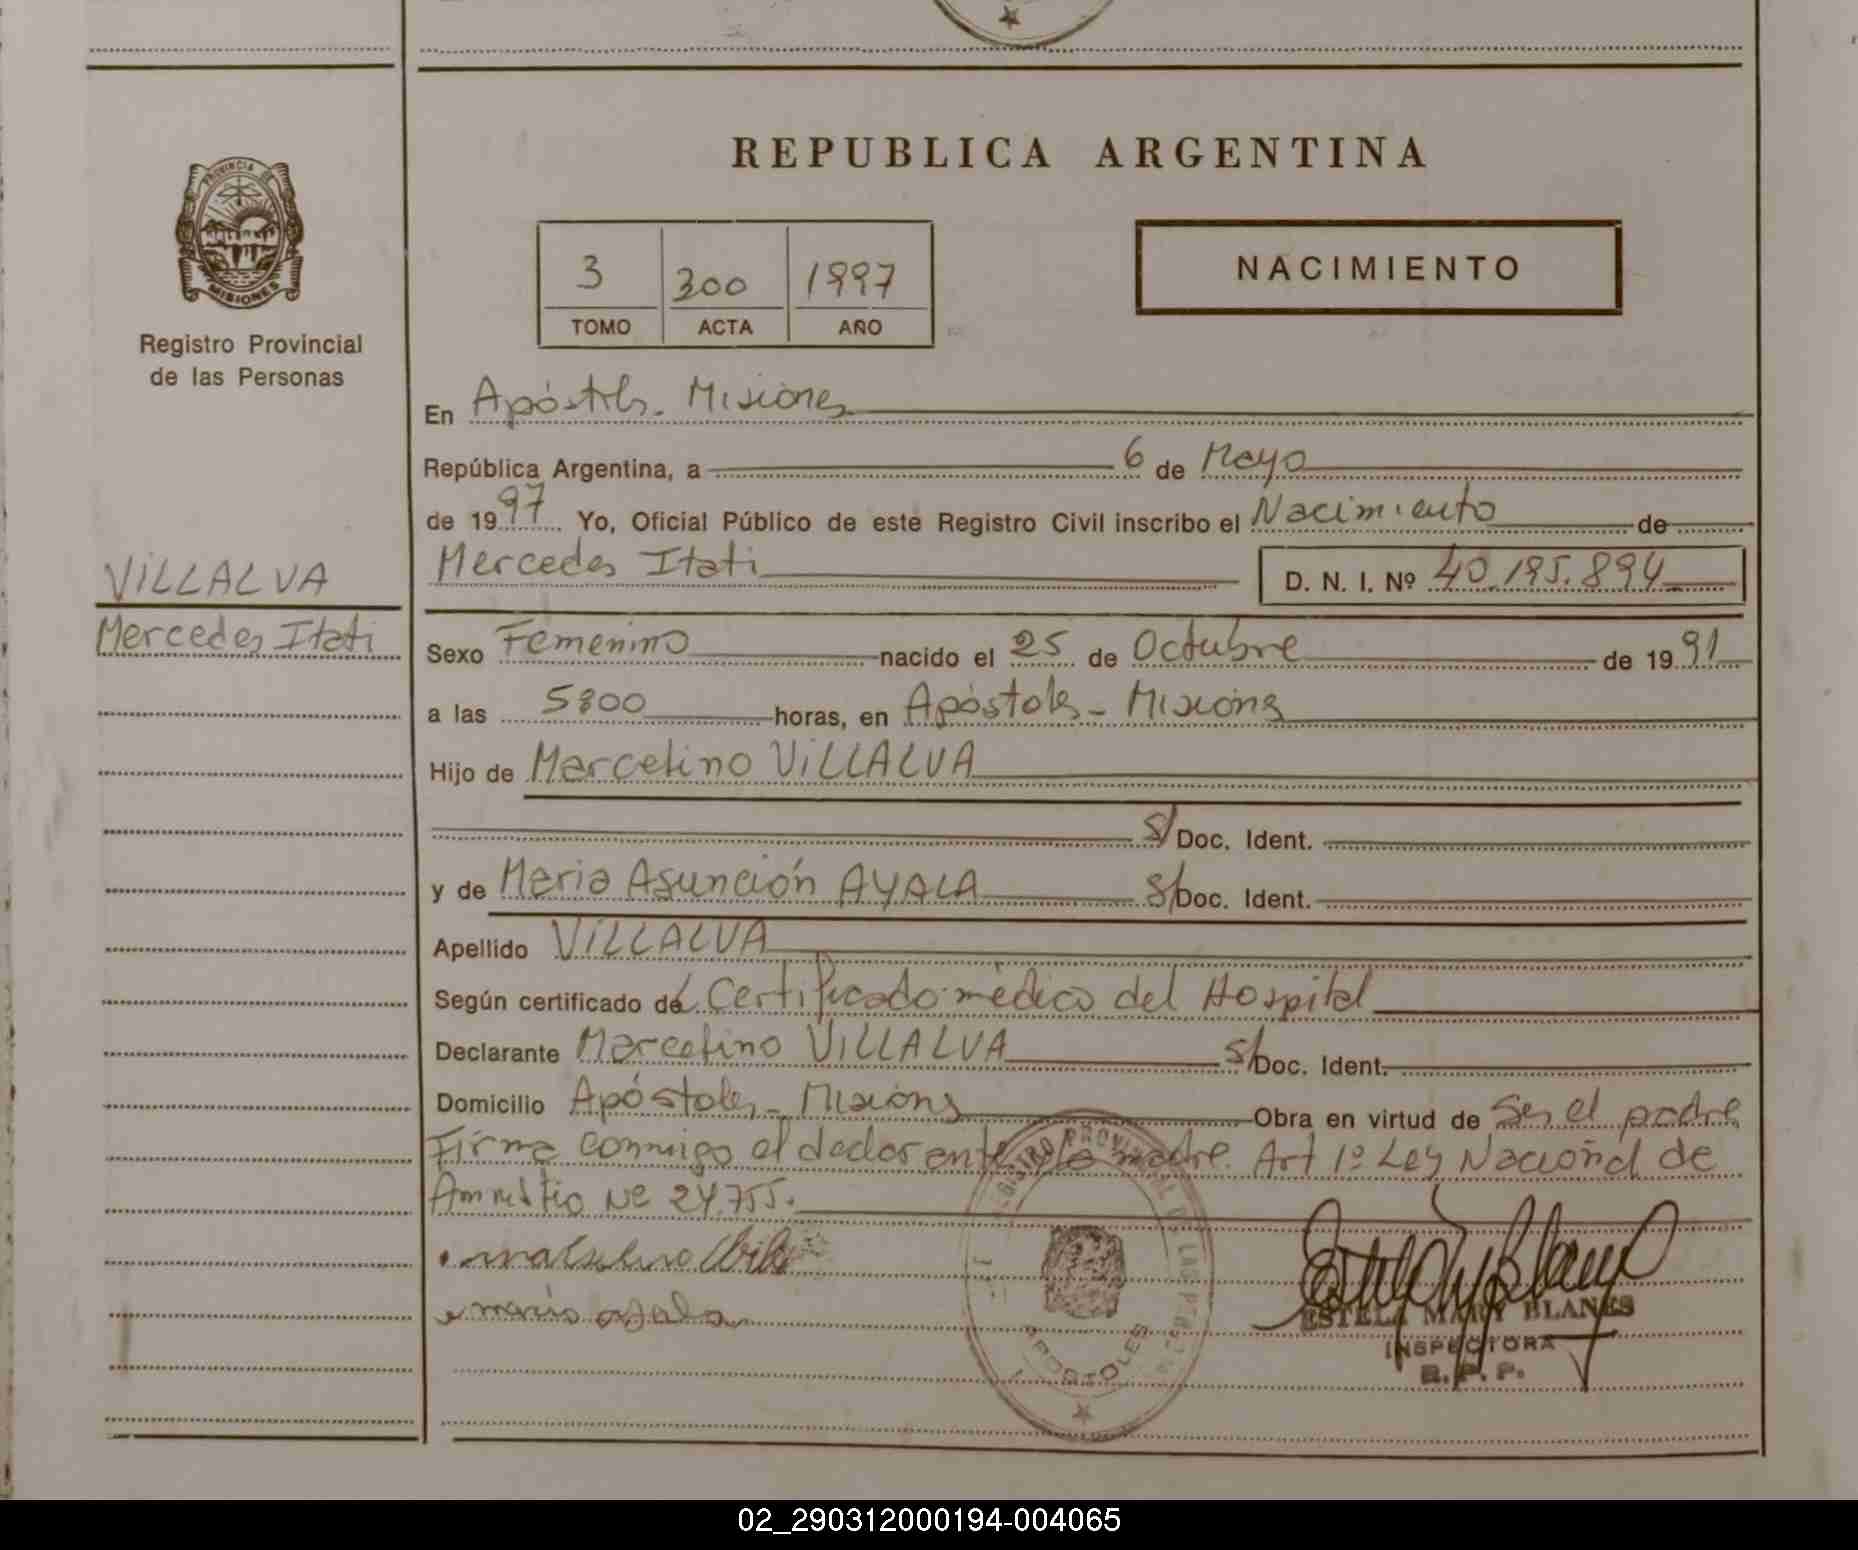 REPUBLICA ARGENTINA
PROVINCIA DE
MISIONES
Registro Provincial
de las Personas
3 300 1997
TOMO ACTA AÑO
NACIMIENTO
En Apóstoles. Misiones
República Argentina, a 6 de Mayo
de 1997 Yo, Oficial Público de este Registro Civil inscribo el Nacimiento de
VILLALVA
Mercedes Itati
Mercedes Itati D. N. I. Nº 40.195.894
Sexo Femenino nacido el 25 de Octubre de 1991
a las 5:00 horas, en Apóstoles - Misiones
Hijo de Marcelino VILLALVA
S/ Doc. Ident.
y de Maria Asunción AYALA S/ Doc. Ident.
Apellido VILLALVA
Según certificado de Certificado médico del Hospital
Declarante Marcelino VILLALVA S/ Doc. Ident.
Domicilio Apóstoles - Misiones Obra en virtud de Ser el padre
Firma conmigo el declarante la madre. Art 1º Ley Nacional de
Amnistia Nº 24.755.
maria ayala
REGISTRO PROVINCIAL DE LAS PERSONAS
APOSTOLES
ESTELA MARY BLANES
INSPECTORA
R. P. P.
02_290312000194-004065